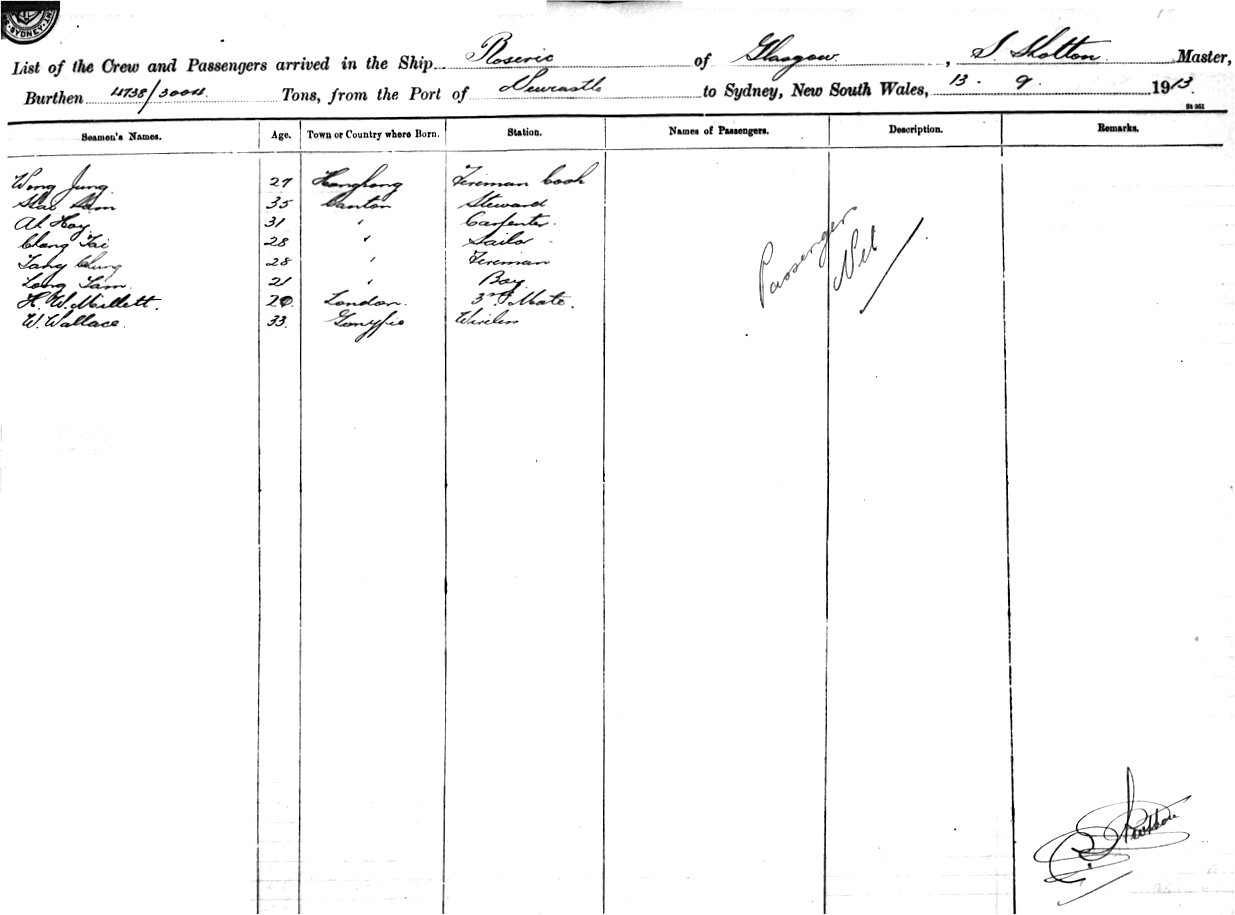 SYDNEY
List of the Crew and Passengers arrived in the Ship Roseric of Glasgow, S. Shotton Master,
Burthen 4738/3004 Tons, from the Port of Newcastle to Sydney, New South Wales, 13 - 9. 1913.
St 951
Seamen's Names. Age. Town or Country where Born. Station. Names of Passengers. Description. Remarks.
Wong Jung. 27 Hongkong Fireman Cook
35 Canton Steward
Ah Hoy 31 " Carpenter.
Chong Tai 28 " Sailor
Tang Chung 28 " Fireman
Long Tam 21 " Boy
H. W. Millett. 20 London. 3rd Mate.
W. Wallace. 33. Wireless
Passenger
Nil